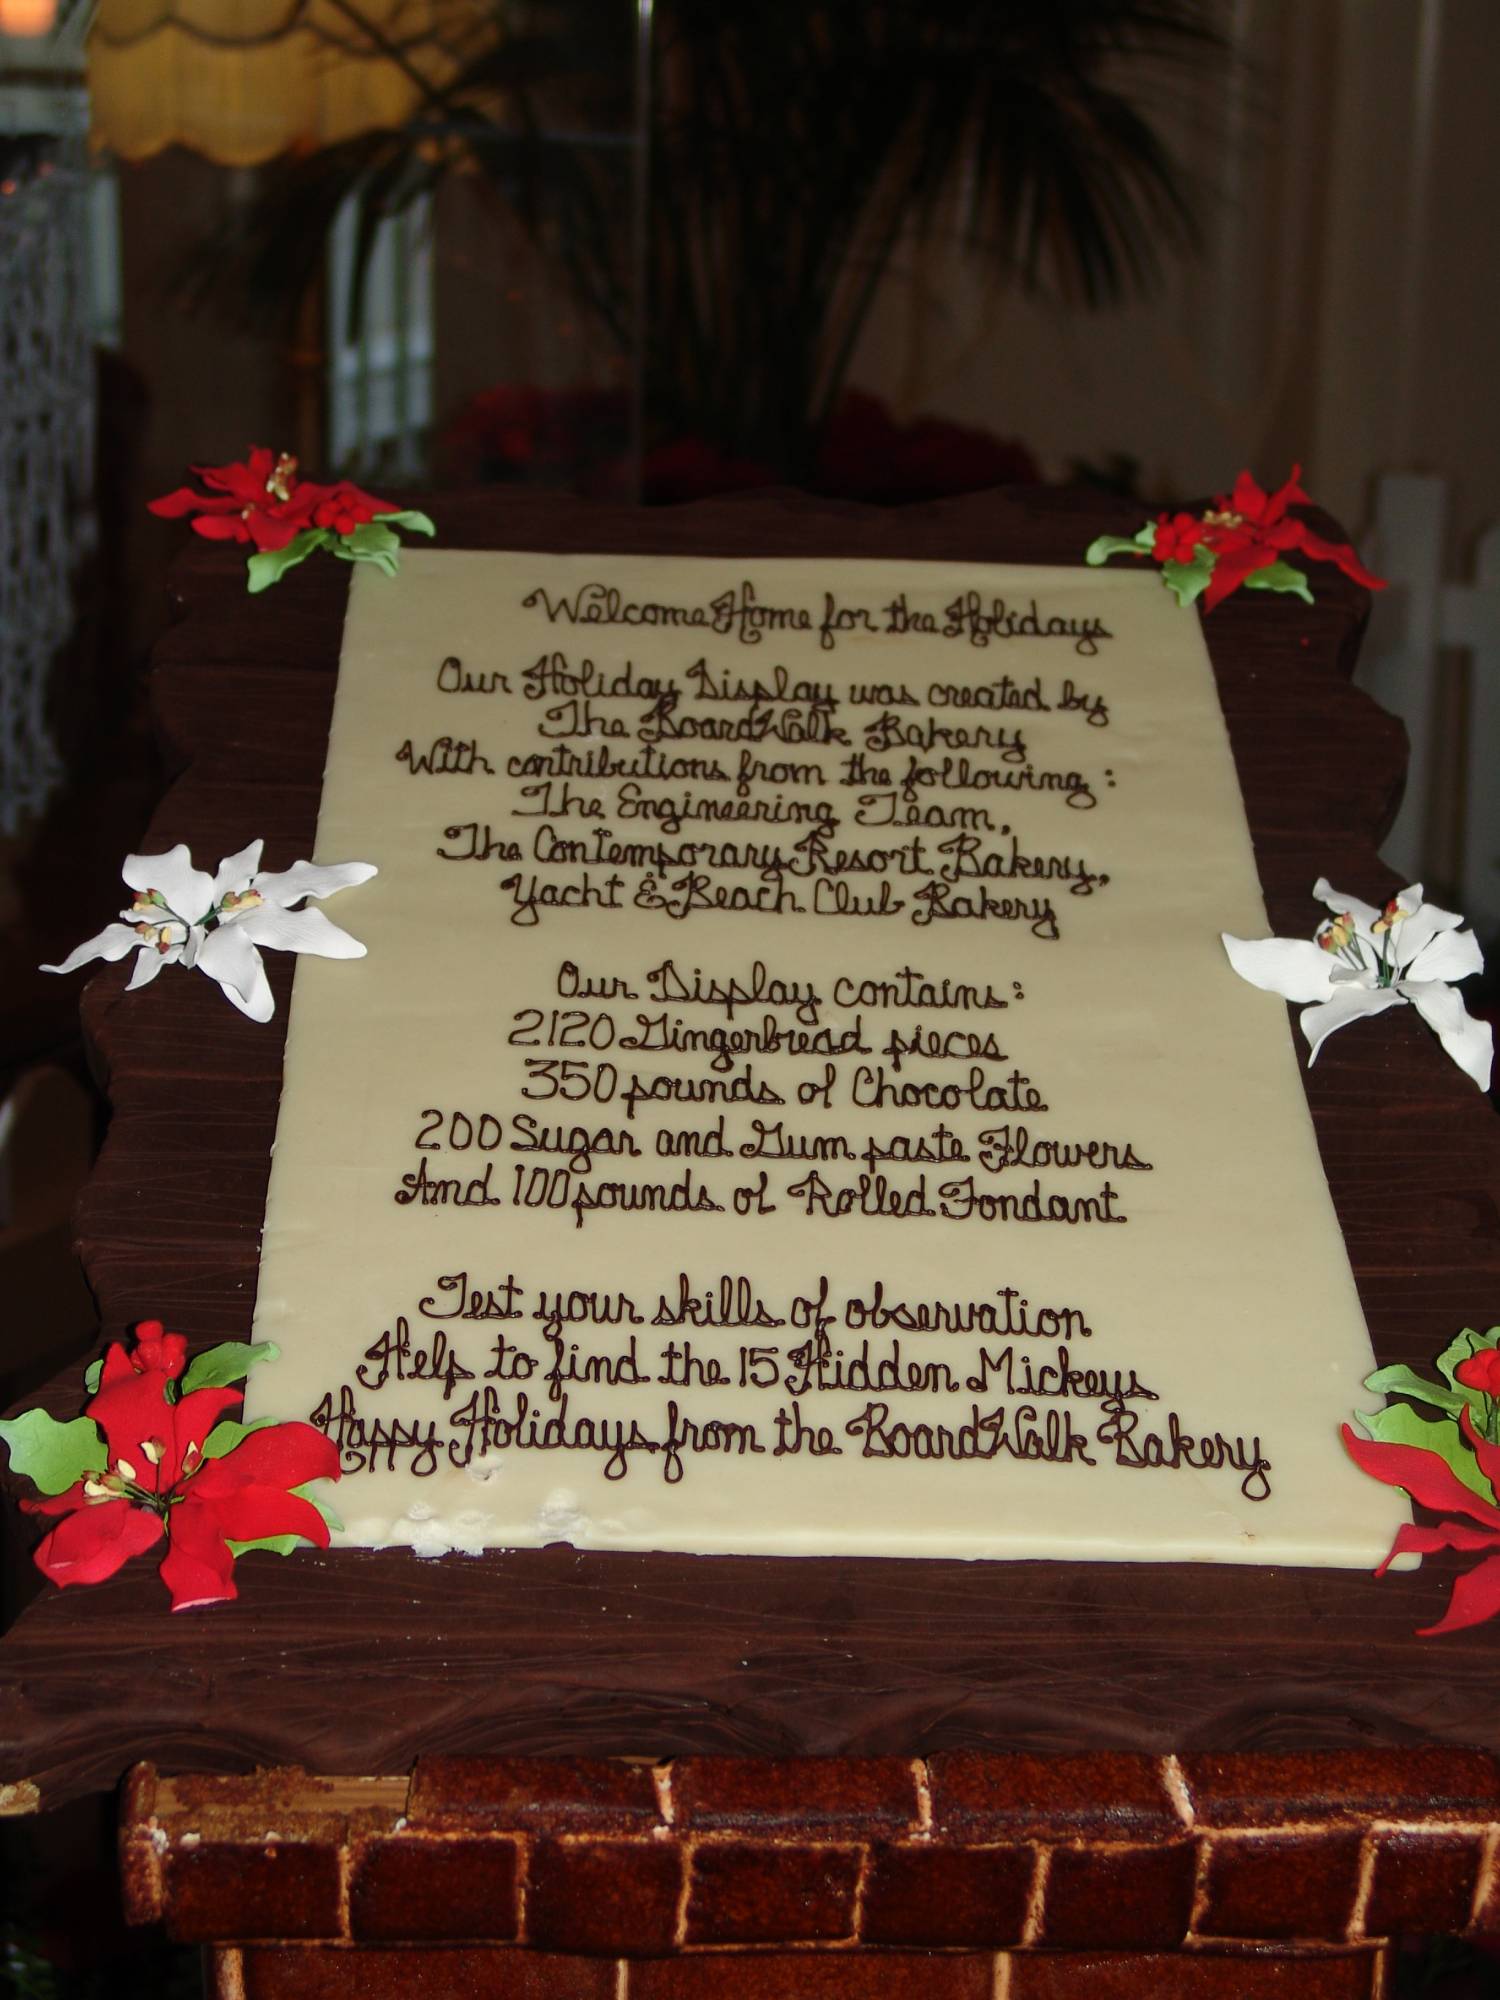 Welcome Home for the Holidays
Our Holiday Display was created by
The BoardWalk Bakery
With contributions from the following:
The Engineering Team,
The Contemporary Resort Bakery,
Yacht & Beach Club Bakery
Our Display contains:
2120 Gingerbread pieces
350 pounds of Chocolate
200 Sugar and Gum paste Flowers
And 100 pounds of Rolled Fondant
Test your skills of observation
Help to find the 15 Hidden Mickeys
Happy Holidays from the BoardWalk Bakery